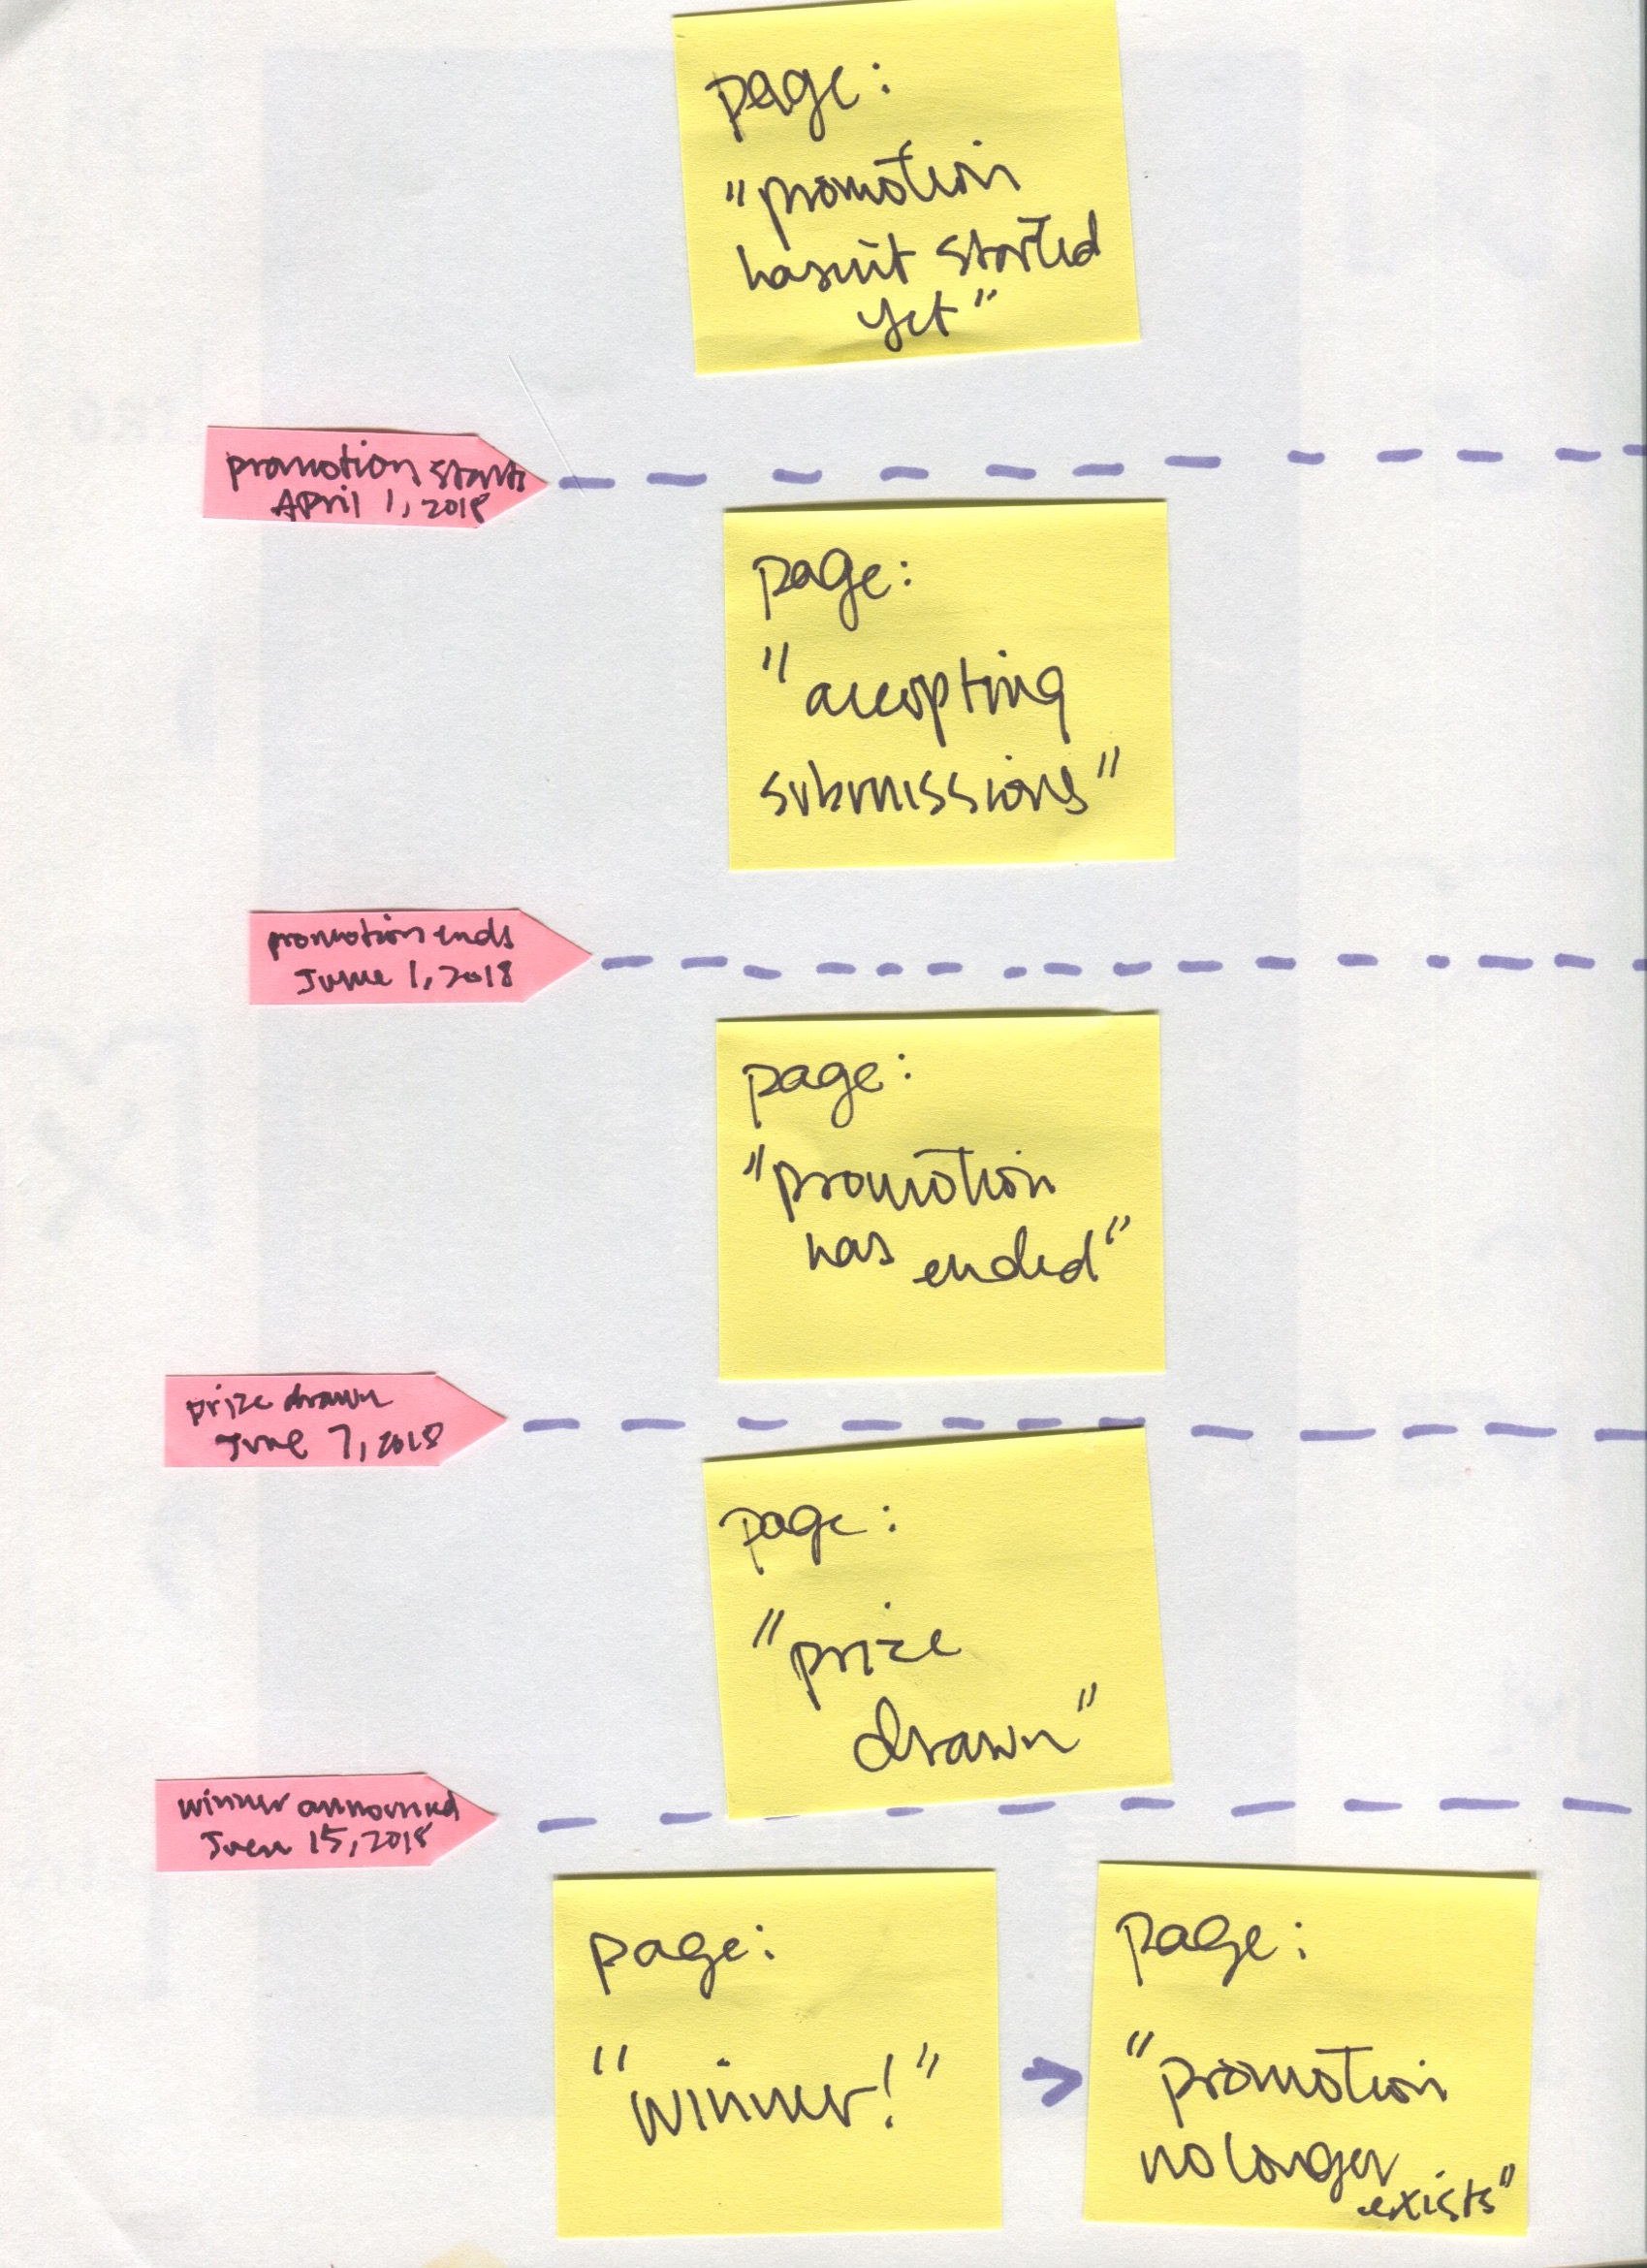 page:
"promotion
hasn't started
yet"
promotion starts
April 1, 2018
page:
"accepting
submissions"
promotion ends
June 1, 2018
page:
"promotion
has ended"
prize drawn
June 7, 2018
page:
"prize
drawn"
winner announced
Juen 15, 2018
page:
"winner!"
page:
"promotion
no longer
exists"